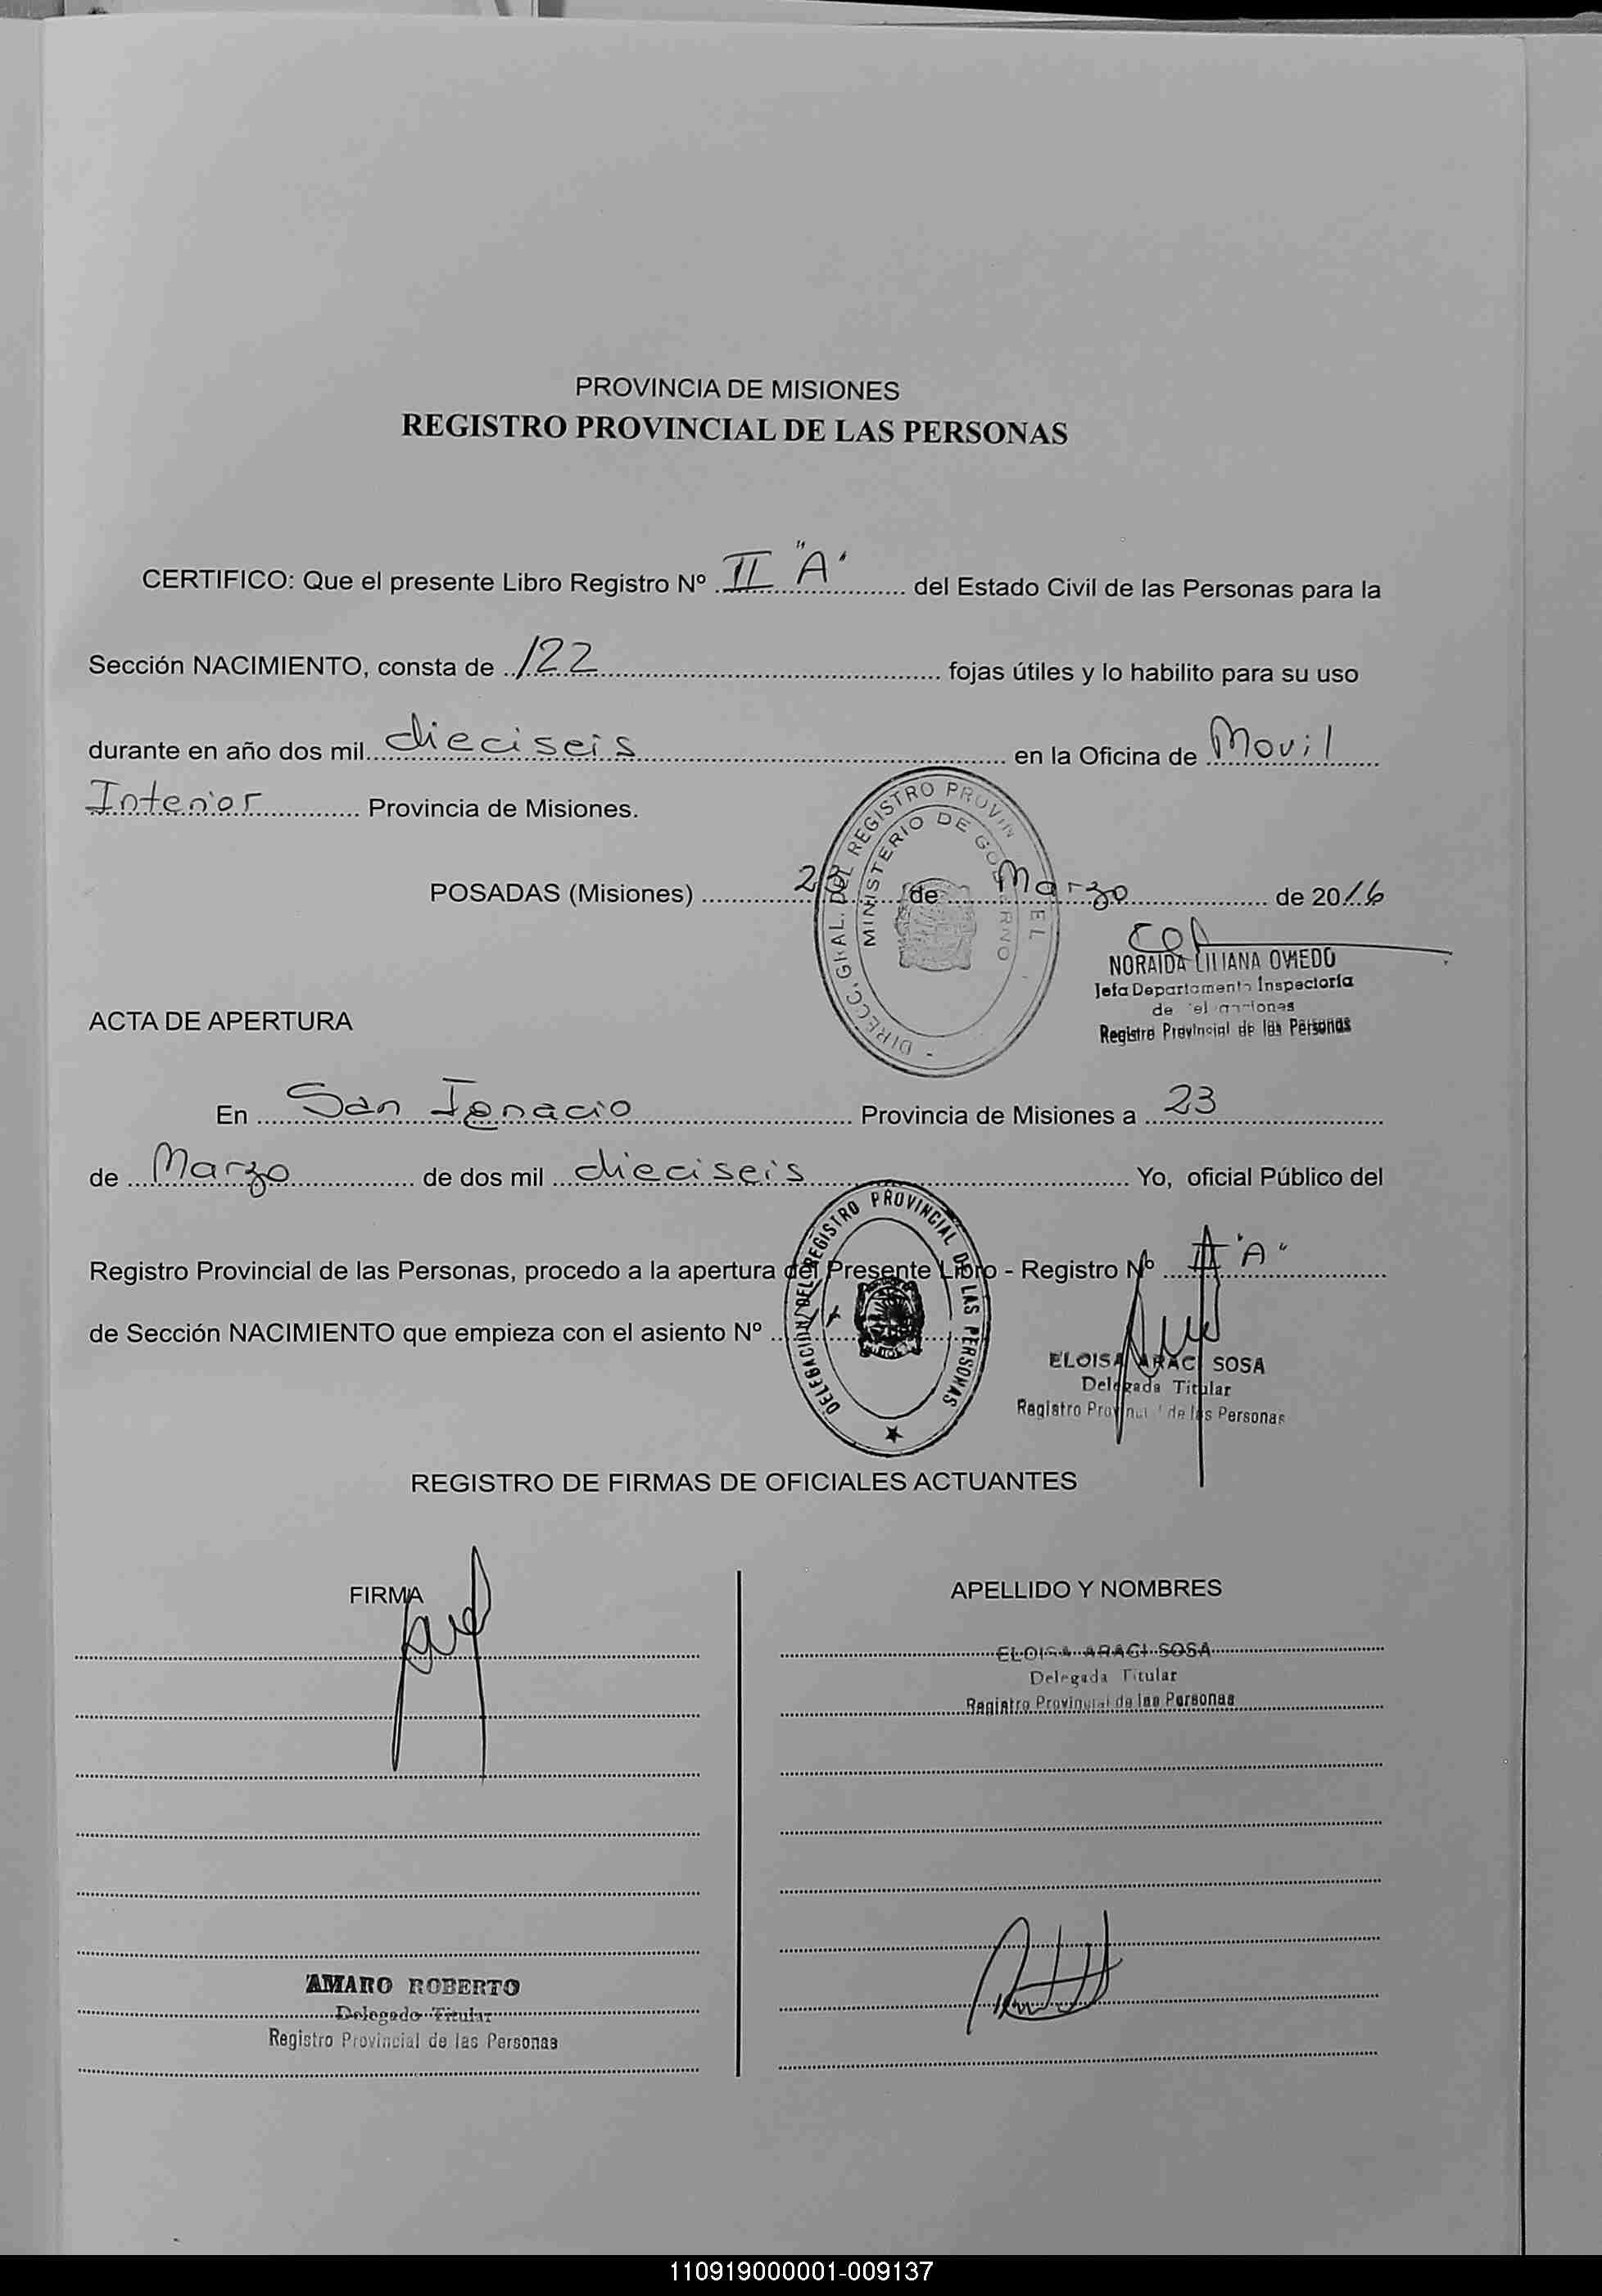 PROVINCIA DE MISIONES
REGISTRO PROVINCIAL DE LAS PERSONAS
CERTIFICO: Que el presente Libro Registro Nº II "A" del Estado Civil de las Personas para la
Sección NACIMIENTO, consta de 122 fojas útiles y lo habilito para su uso
durante en año dos mil dieciseis en la Oficina de Movil
Interior Provincia de Misiones.
DIRECC. GRAL. DEL REGISTRO PROVIN
MINISTERIO DE GOBIERNO
POSADAS (Misiones) de Marzo de 2016
NORAIDA LILIANA OVIEDO
Jefa Departamento Inspectoría
de
Registro Provincial de las Personas
ACTA DE APERTURA
En San Ignacio Provincia de Misiones a 23
de Marzo de dos mil dieciseis Yo, oficial Público del
Registro Provincial de las Personas, procedo a la apertura del Presente Libro - Registro Nº II "A"
de Sección NACIMIENTO que empieza con el asiento Nº
DELEGACION DEL REGISTRO PROVINCIAL DE LAS PERSONAS
ELOISA ARACI SOSA
Delegada Titular
Registro Provincial de las Personas
REGISTRO DE FIRMAS DE OFICIALES ACTUANTES
FIRMA
APELLIDO Y NOMBRES
ELOISA ARACI SOSA
Delegada Titular
Registro Provincial de las Personas
AMARO ROBERTO
Delegado Titular
Registro Provincial de las Personas
110919000001-009137